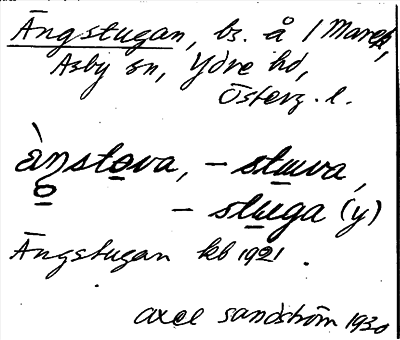 Ängstugan, bs. å / Marek,
Asby sn, Ydre hd,
Österg. l.
ä̀ngstova, – stuuva,
– stuga (y)
Ängstugan kb 1921.
Axel Sandström 1930